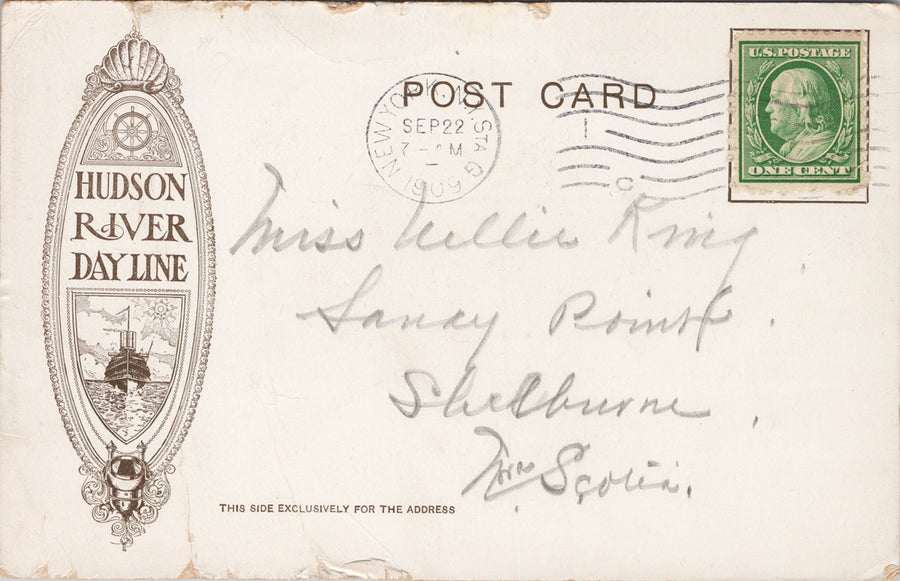 HUDSON
RIVER
DAY LINE
POST CARD
NEW YORK, N.Y. STA G
SEP 22
7 - AM
1909
U.S. POSTAGE
ONE CENT
Miss Nellie King
Sandy Point.
Shelburne,
Scotia.
THIS SIDE EXCLUSIVELY FOR THE ADDRESS